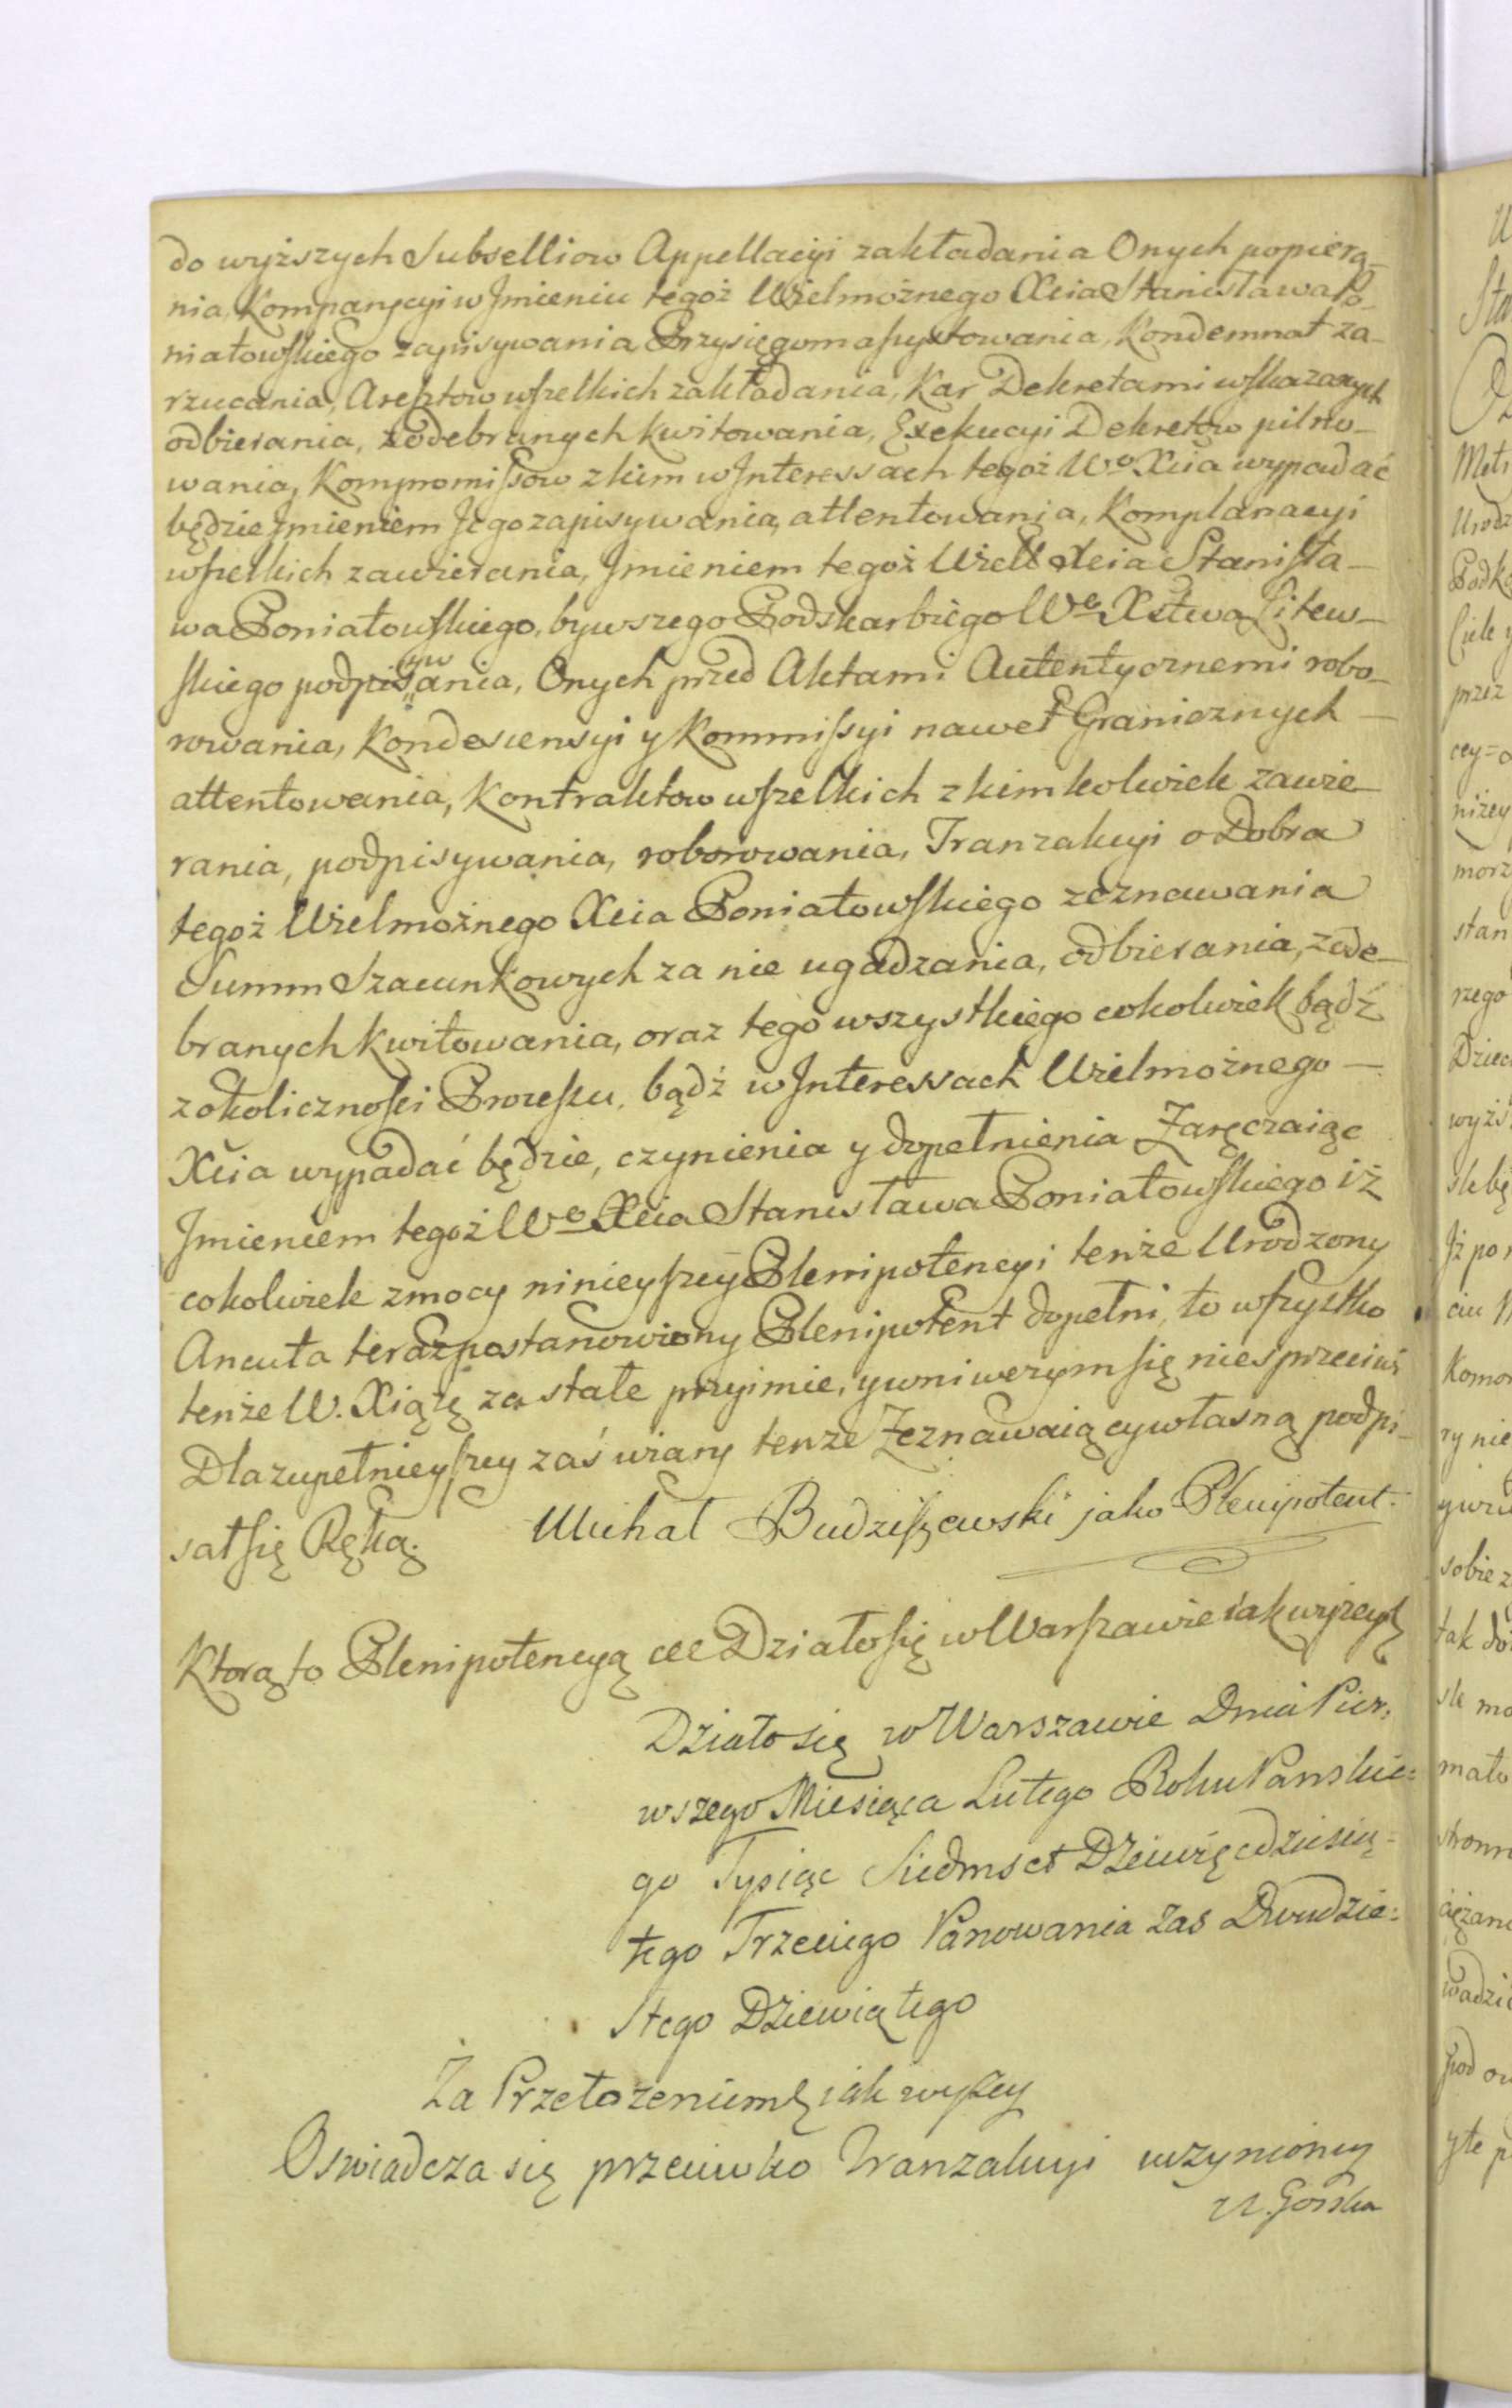 do wyższych Subselliow Appellacyi zakładania Onych popiera-
nia, Komparycyi w Jmieniu tegoż Wielmożnego Xcia Stanisława Po-
niatowskiego zapisywania Przysięgom assystowania, Kondemnat za-
rzucania, Aresztow wszelkich zakładania, Kar Dekretami wskazanych
odbierania, z odebranych kwitowania, Exekucyi Dekretow pilno-
wania, Kompromissow z kim w Jnteressach tegoż Wo Xcia wypadać
będzie Jmieniem Jego zapisywania, attentowania, Komplanacyi
wszelkich zawierania, Jmieniem tegoż Wiel Xcia Stanisła-
wa Poniatowskiego, bywszego Podskarbiego Wo Xstwa Litew-
skiego podpisywania, Onych przed Aktami Autentycznemi robo-
rowania, Kondescensyi y Kommissyi nawet Granicznych —
attentowania, Kontraktow wszelkich z kimkolwiek zawie-
rania, podpisywania, roborowania, Tranzakcyi o Dobra
tegoż Wielmożnego Xcia Poniatowskiego zeznawania
Summ Szacunkowych za nie ugadzania, odbierania, z ode-
branych kwitowania, oraz tego wszystkiego cokolwiek bądź
z okoliczności Processu, bądź w Jnteressach Wielmożnego —
Xcia wypadać będzie, czynienia y dopełnienia Zaręczaiąc
Jmieniem tegoż Wo Xcia Stanisława Poniatowskiego iż
cokolwiek z mocy ninieyszey Plenipotencyi tenże Urodzony
Ancuta teraz postanowiony Plenipotent dopełni, to wszystko
tenże W. Xiąże za stałe przyimie, y w niwczym się niesprzeciwi
Dla zupełnieyszey zaś wiary tenże Zeznawaiący własną podpi-
sał się Ręką. Michał Budziszewski jako Plenipotent.
Ktorą to Plenipotencyą etc Działo się w Warszawie iak wyżey
Działo się w Warszawie Dnia Pier:
wszego Miesiąca Lutego Roku Panskie:
go Tysiąc Siedmset Dziewięcdziesią=
tego Trzeciego Panowania Zas Dwudzie:
stego Dziewiątego
Za Przełożeniem iak wyżey
Oswiadcza się przeciwko Tranzakcyi uczynioney
U. Gorska